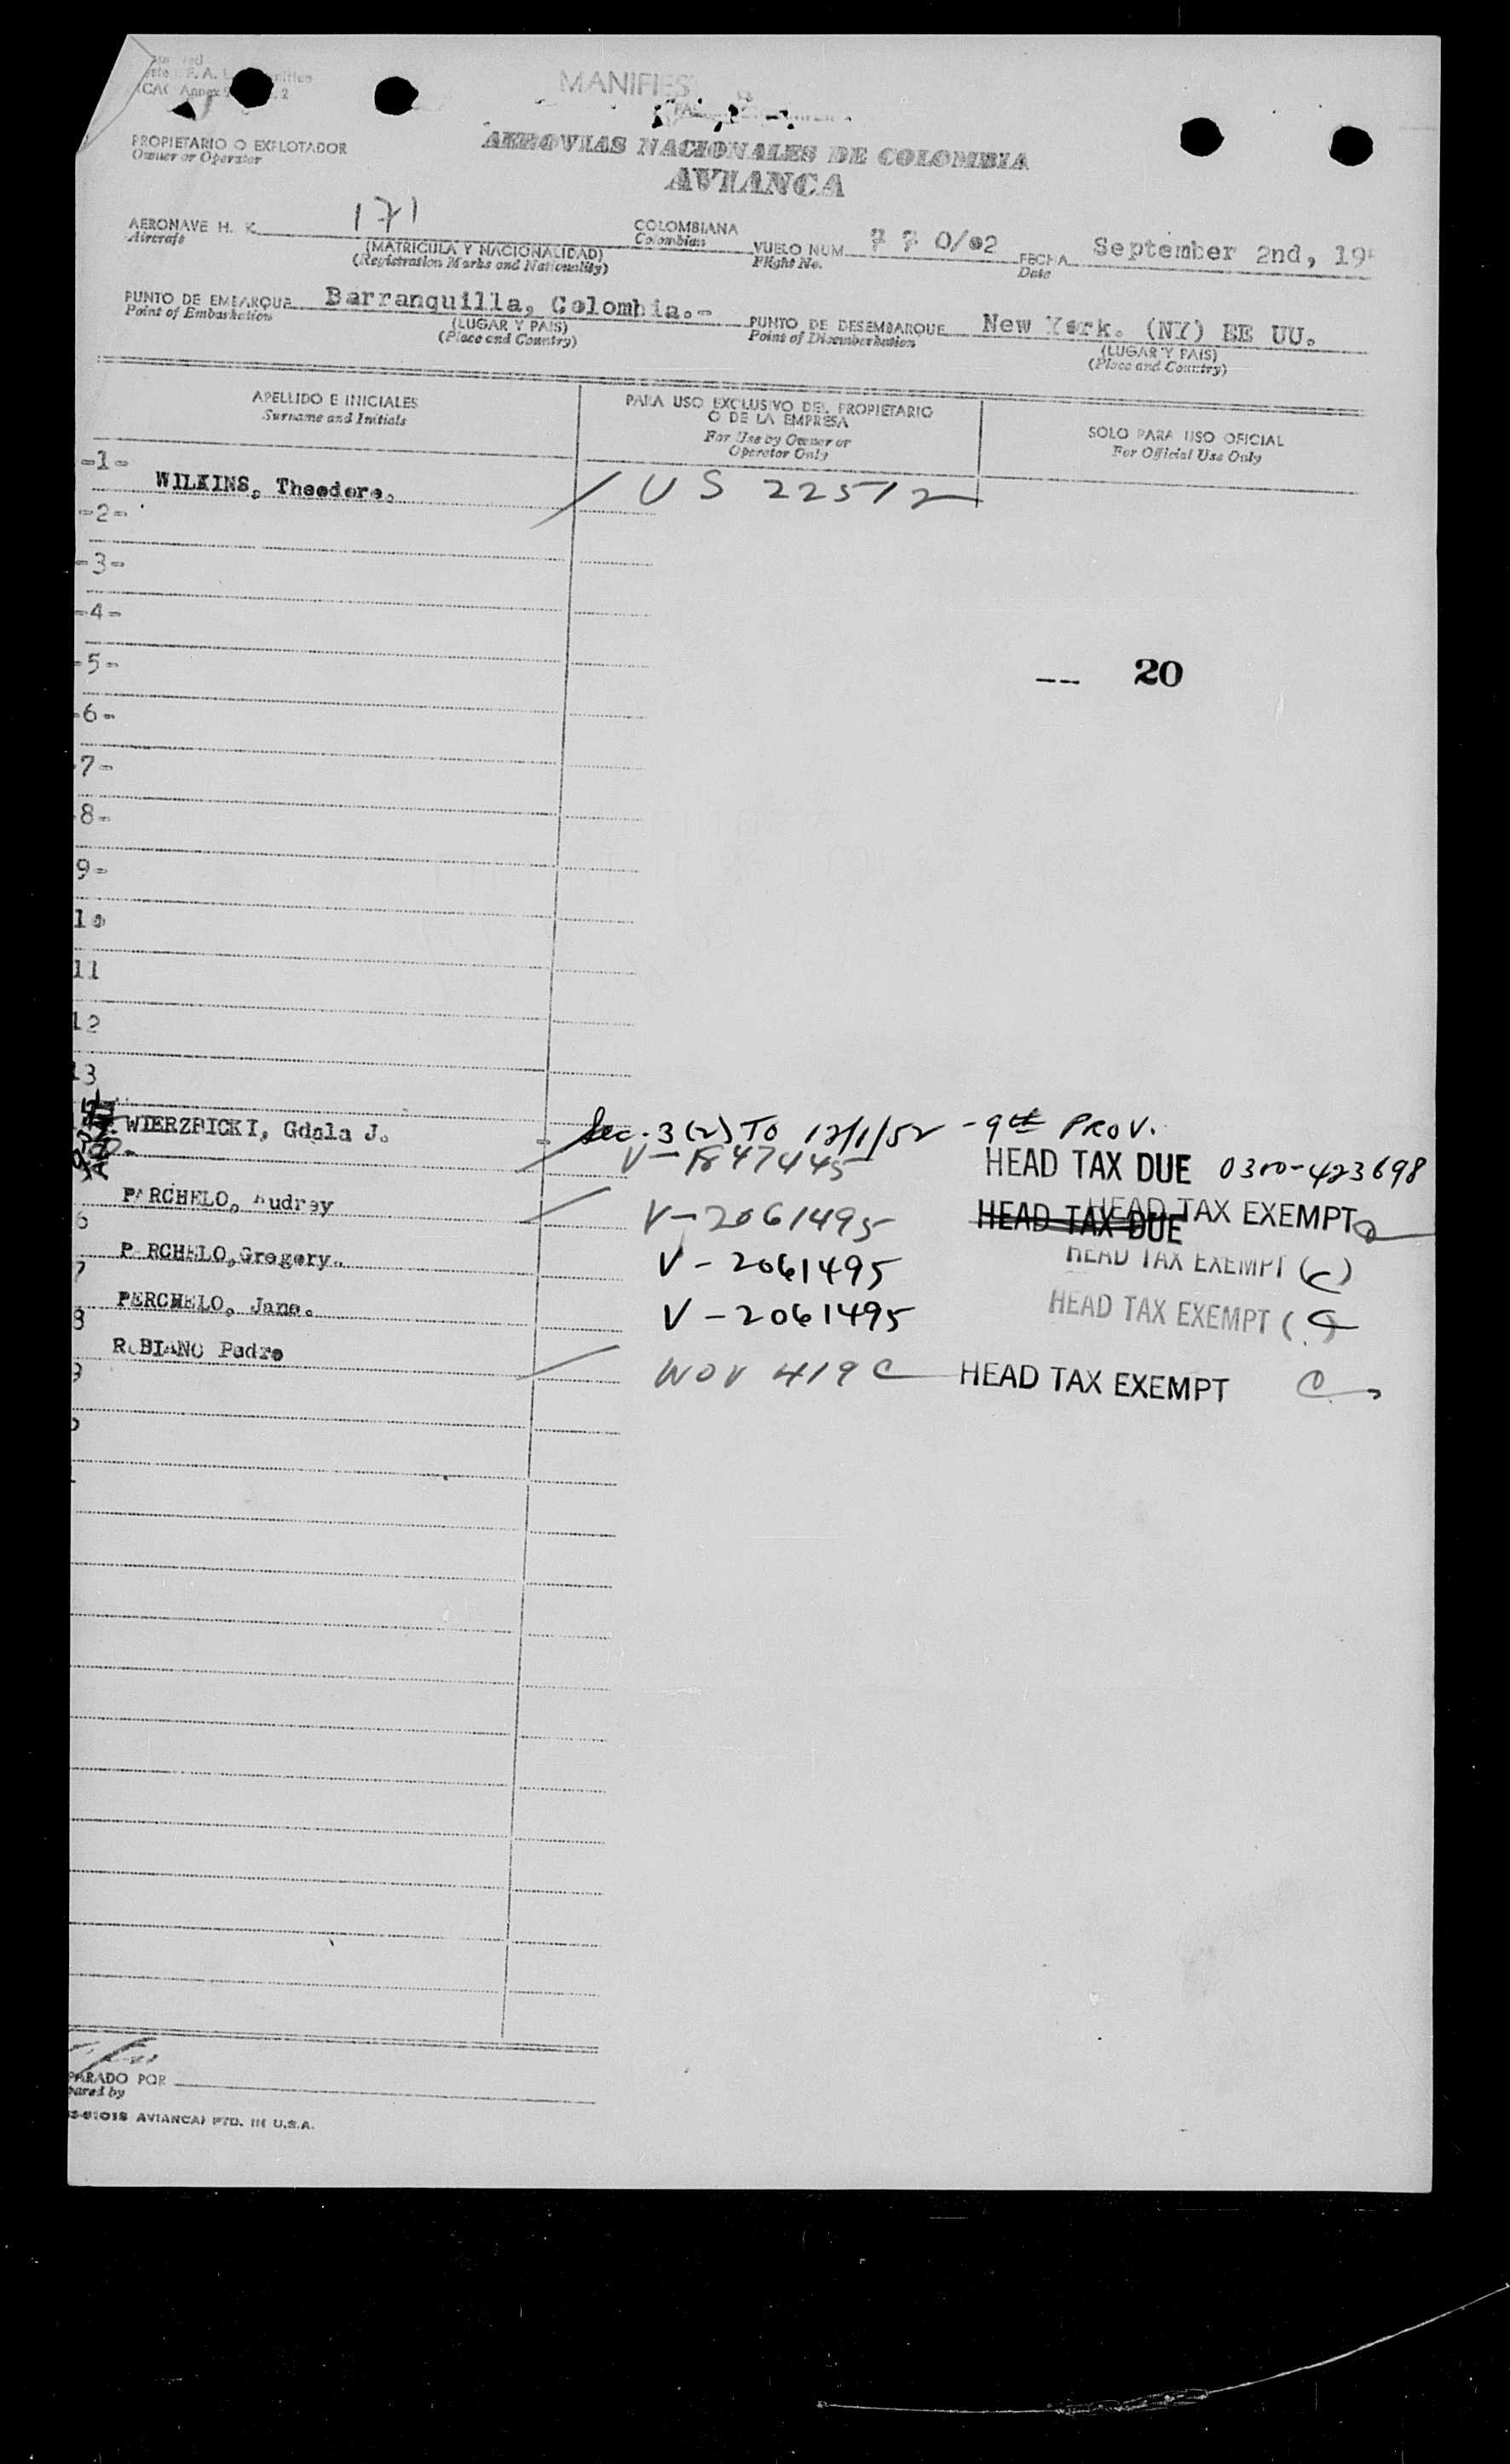 MANIFIES
PROPIETARIO O EXPLOTADOR
Owner or Operator
AEROVIAS NACIONALES DE COLOMBIA
AVIANCA
AERONAVE H. K. 171
Aircraft
(MATRICULA Y NACIONALIDAD)
(Registration Marks and Nationality)
COLOMBIANA
Colombian
VUELO NUM. 7 7 0/02
Flight No.
FECHA September 2nd, 19
Date
PUNTO DE EMBARQUE Barranquilla, Colombia.-
Point of Embarkation
(LUGAR Y PAIS)
(Place and Country)
PUNTO DE DESEMBARQUE New York. (NY) EE UU.
Point of Disembarkation
(LUGAR Y PAIS)
(Place and Country)
APELLIDO E INICIALES
Surname and Initials
PARA USO EXCLUSIVO DEL PROPIETARIO
O DE LA EMPRESA
For Use by Owner or
Operator Only
SOLO PARA USO OFICIAL
For Official Use Only
-1-
WILKINS, Theodore. US 22512
-2-
-3-
-4-
-5-
-- 20
-6-
7-
8-
9-
10
11
12
13
WIERZBICKI, Gdala J. Sec. 3(2) TO 12/1/52 - 9th PROV.
HEAD TAX DUE 0300-423698
PARCHELO, Audrey V-2061495 HEAD TAX DUE HEAD TAX EXEMPT
6
PERCHELO, Gregory. V-2061495 HEAD TAX EXEMPT (C)
7
PERCHELO, Jane. V-2061495 HEAD TAX EXEMPT (C)
8
RUBIANO Pedro NOV 419 C HEAD TAX EXEMPT C
9
PARADO POR
pared by
AVIANCA) PTD. IN U.S.A.